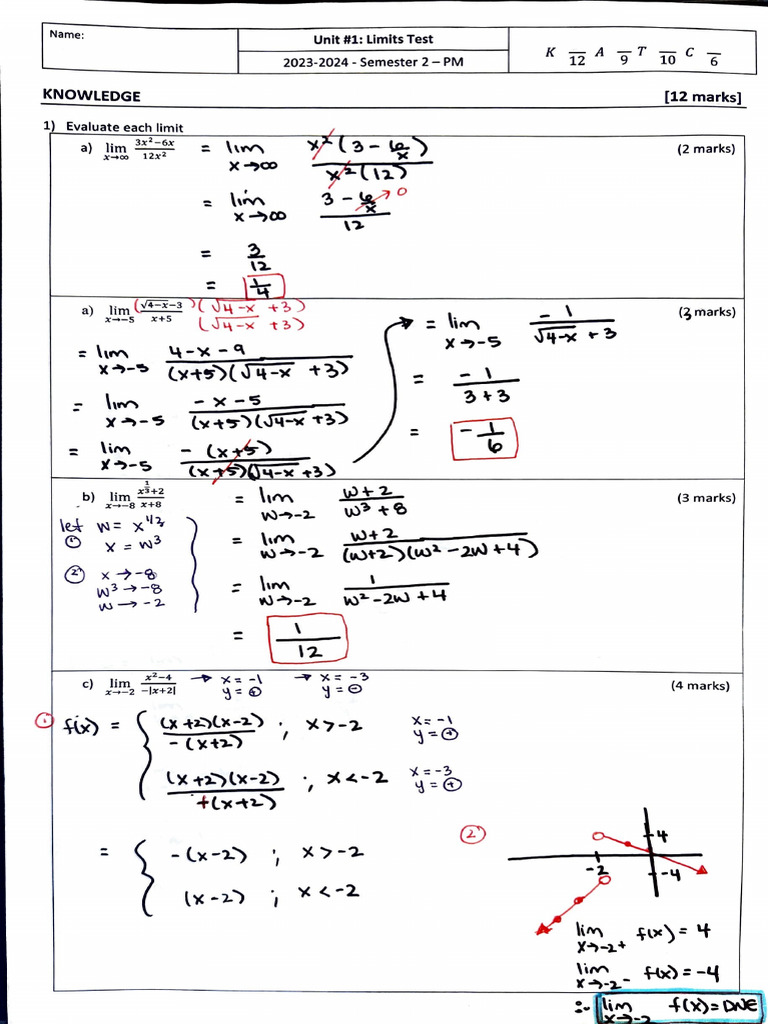 Name:
Unit #1: Limits Test
2023-2024 - Semester 2 – PM
K /12 A /9 T /10 C /6
KNOWLEDGE [12 marks]
1) Evaluate each limit
a) lim x→∞ (3x²−6x)/(12x²) = lim x→∞ x²(3 − 6/x) / x²(12) (2 marks)
= lim x→∞ (3 − 6/x → 0) / 12
= 3/12
= 1/4
a) lim x→−5 (√4−x −3)/(x+5) (√4−x +3)/(√4−x +3) (3 marks)
= lim x→−5 (4−x−9) / (x+5)(√4−x +3)
= lim x→−5 (−x−5) / (x+5)(√4−x +3)
= lim x→−5 −(x+5) / (x+5)(√4−x +3)
= lim x→−5 −1 / (√4−x +3)
= −1 / (3+3)
= −1/6
b) lim x→−8 (x^(1/3)+2)/(x+8) = lim w→−2 (w+2)/(w³+8) (3 marks)
let w = x^(1/3)
① x = w³
② x → −8
w³ → −8
w → −2
= lim w→−2 (w+2) / (w+2)(w²−2w+4)
= lim w→−2 1 / (w²−2w+4)
= 1/12
c) lim x→−2 (x²−4)/(−|x+2|) → x=−1 y=⊕ → x=−3 y=⊖ (4 marks)
① f(x) = { (x+2)(x−2) / −(x+2) ; x>−2 x=−1 y=⊕
(x+2)(x−2) / +(x+2) ; x<−2 x=−3 y=⊕
= { −(x−2) ; x>−2
(x−2) ; x<−2
②
4
−2
−4
lim x→−2+ f(x) = 4
lim x→−2− f(x) = −4
∴ lim x→−2 f(x) = DNE